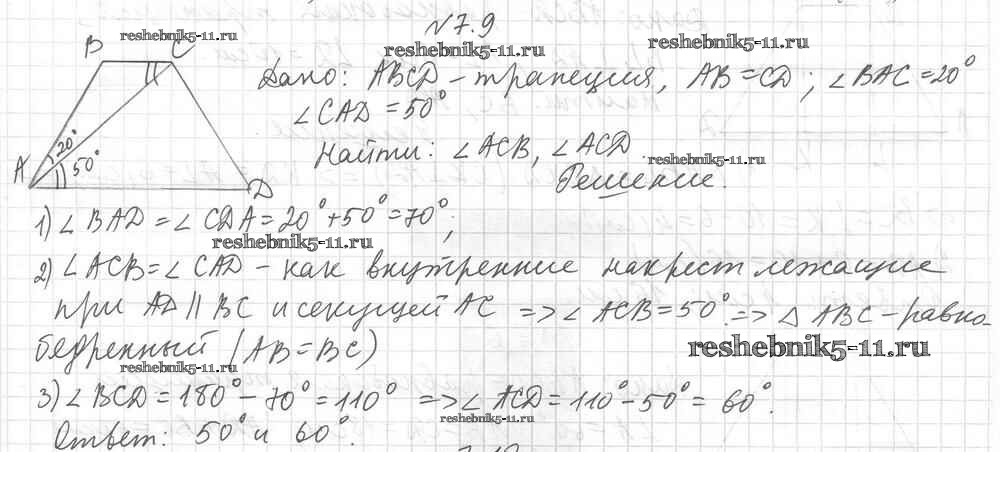 N 7.9
reshebnik5-11.ru
reshebnik5-11.ru
reshebnik5-11.ru
B C
Дано: ABCD – трапеция, AB = CD; ∠BAC = 20°
∠CAD = 50°
20°
A 50° D
Найти: ∠ACB, ∠ACD
reshebnik5-11.ru
Решение.
1) ∠BAD = ∠CDA = 20° + 50° = 70°;
reshebnik5-11.ru
2) ∠ACB = ∠CAD – как внутренние накрест лежащие
при AD || BC и секущей AC => ∠ACB = 50°. => △ABC – равно-
бедренный (AB = BC)
reshebnik5-11.ru
reshebnik5-11.ru
3) ∠BCD = 180° – 70° = 110° => ∠ACD = 110° – 50° = 60°.
reshebnik5-11.ru
Ответ: 50° и 60°.